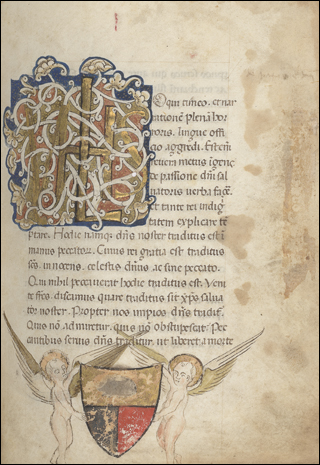 Oqui timeo. et nar
rationē plenā dor
poris. lingue offi
tio aggredi. Est en
reuem metus igenç
de passione dn̄i sal
uatoris uerba facē.
et tante rei indig
tatem explicare tē
ptare. Hodie namqȝ dn̄s noster traditus est ī
manus peccatoꝝ. Cuius rei gratia est traditus
sc̄s innocens. celestus dn̄us ac sine peccato.
Qui nihil peccauerat hodie traditus est. Veni
te fr̄es. discamus quare traditus sit xp̄s salua
tor noster. Propter nos impios dn̄s tradit᷒.
Quis nō admiretur. quis nō obstupescat. Pec
cantibus seruis dn̄s traditur. ut liberet a morte